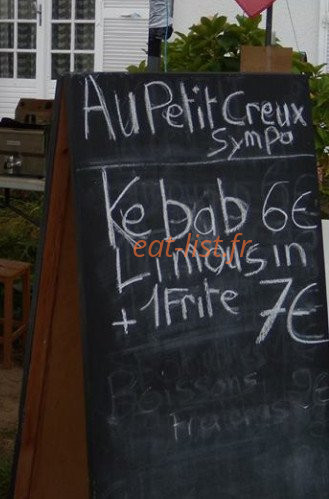 Au Petit Creux
Sympa
Kebab 6€
eat-list.fr
Limousin
+ 1 Frite 7€
Boissons